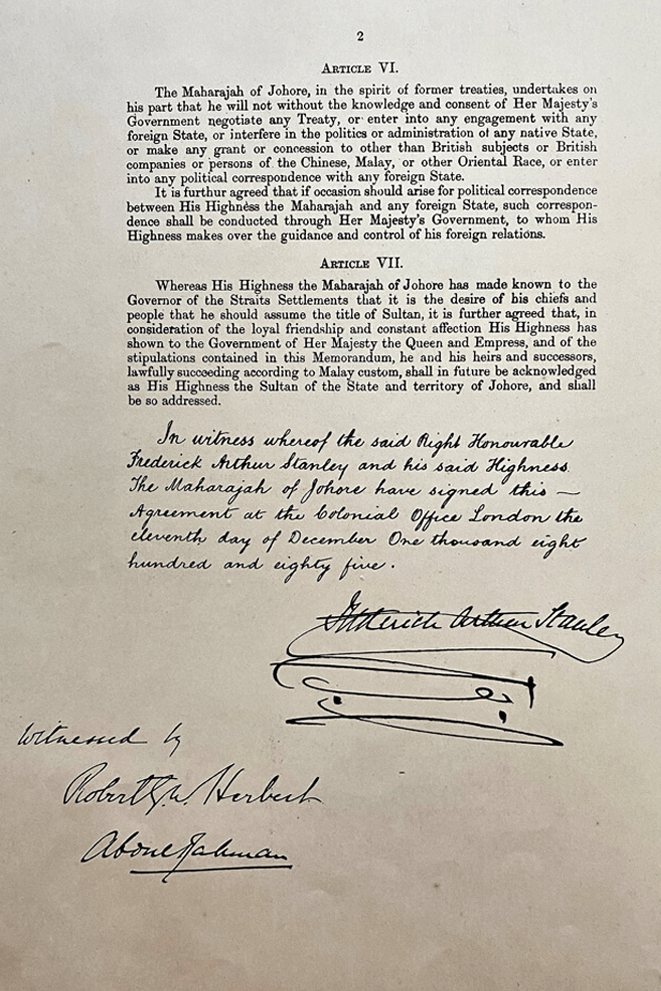 2
ARTICLE VI.
The Maharajah of Johore, in the spirit of former treaties, undertakes on
his part that he will not without the knowledge and consent of Her Majesty's
Government negotiate any Treaty, or enter into any engagement with any
foreign State, or interfere in the politics or administration of any native State,
or make any grant or concession to other than British subjects or British
companies or persons of the Chinese, Malay, or other Oriental Race, or enter
into any political correspondence with any foreign State.
It is furthur agreed that if occasion should arise for political correspondence
between His Highness the Maharajah and any foreign State, such correspon-
dence shall be conducted through Her Majesty's Government, to whom His
Highness makes over the guidance and control of his foreign relations.
ARTICLE VII.
Whereas His Highness the Maharajah of Johore has made known to the
Governor of the Straits Settlements that it is the desire of his chiefs and
people that he should assume the title of Sultan, it is further agreed that, in
consideration of the loyal friendship and constant affection His Highness has
shown to the Government of Her Majesty the Queen and Empress, and of the
stipulations contained in this Memorandum, he and his heirs and successors,
lawfully succeeding according to Malay custom, shall in future be acknowledged
as His Highness the Sultan of the State and territory of Johore, and shall
be so addressed.
In witness whereof the said Right Honourable
Frederick Arthur Stanley and his said Highness
The Maharajah of Johore have signed this —
Agreement at the Colonial Office London the
eleventh day of December One thousand eight
hundred and eighty five.
Frederick Arthur Stanley
Witnessed by
Robert G. W. Herbert